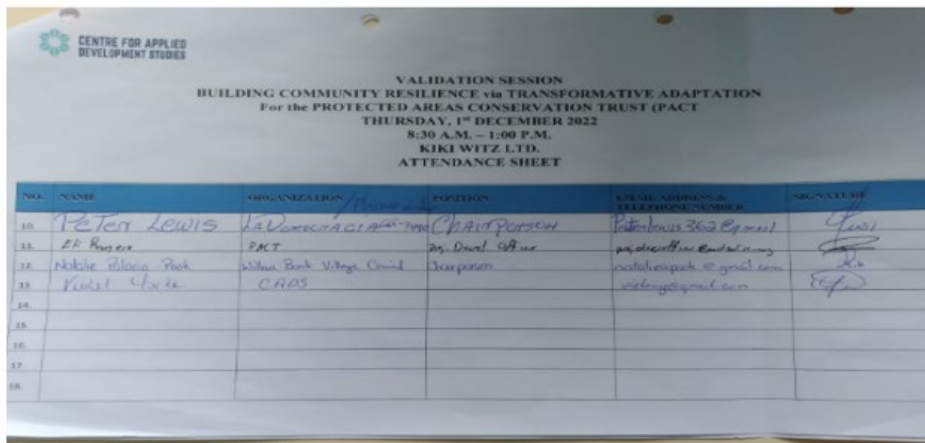 CENTRE FOR APPLIED
DEVELOPMENT STUDIES
VALIDATION SESSION
BUILDING COMMUNITY RESILIENCE via TRANSFORMATIVE ADAPTATION
For the PROTECTED AREAS CONSERVATION TRUST (PACT
THURSDAY, 1st DECEMBER 2022
8:30 A.M. – 1:00 P.M.
KIKI WITZ LTD.
ATTENDANCE SHEET
NO. NAME ORGANIZATION POSITION EMAIL ADDRESS & TELEPHONE NUMBER SIGNATURE
10. Peter Lewis LA DEMOCRACIA Chairperson
11. PACT
12. Natalie Pook Village Council Chairperson nataliepook@gmail.com
13. Violet CADS
14.
15.
16.
17.
18.